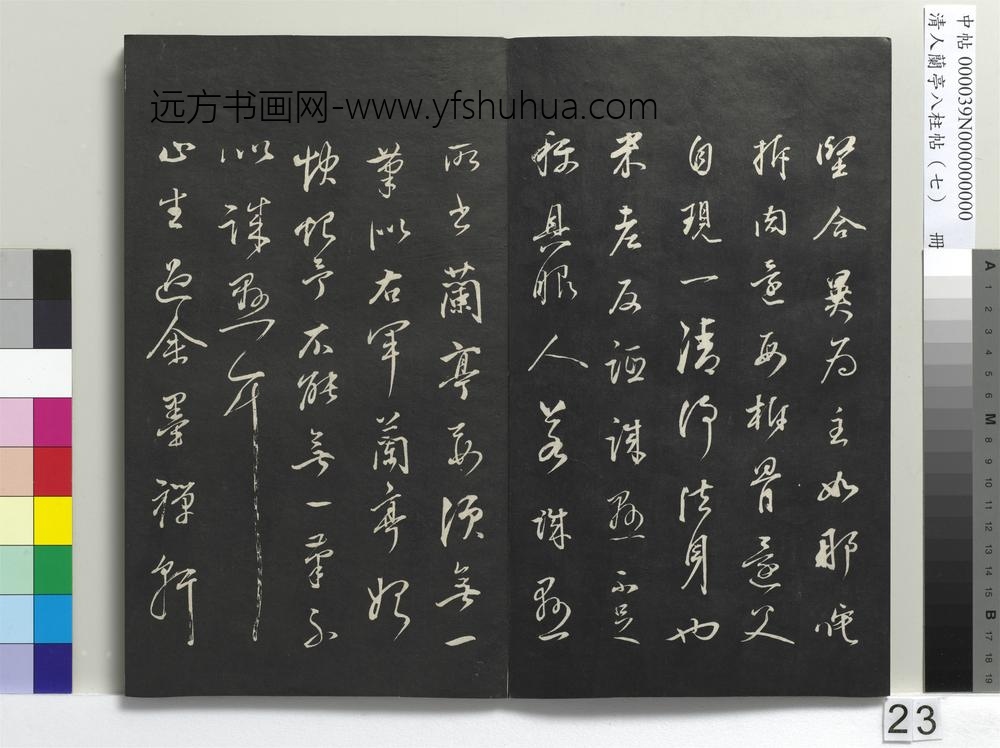 远方书画网-www.yfshuhua.com
中帖 000039N000000000
清人蘭亭八柱帖（七） 冊
堅合異為主如那吒
拆肉還母拆骨還父
自現一清淨法身也
米老反証誠懸不足
稱具眼人若誠懸
所書蘭亭要須無一
筆似右軍蘭亭始
快然予不能無一筆不
似誠懸 年
止生過余墨禪軒
A 1 2 3 4 5 6 M 8 9 10 11 12 13 14 15 B 17 18 19
23